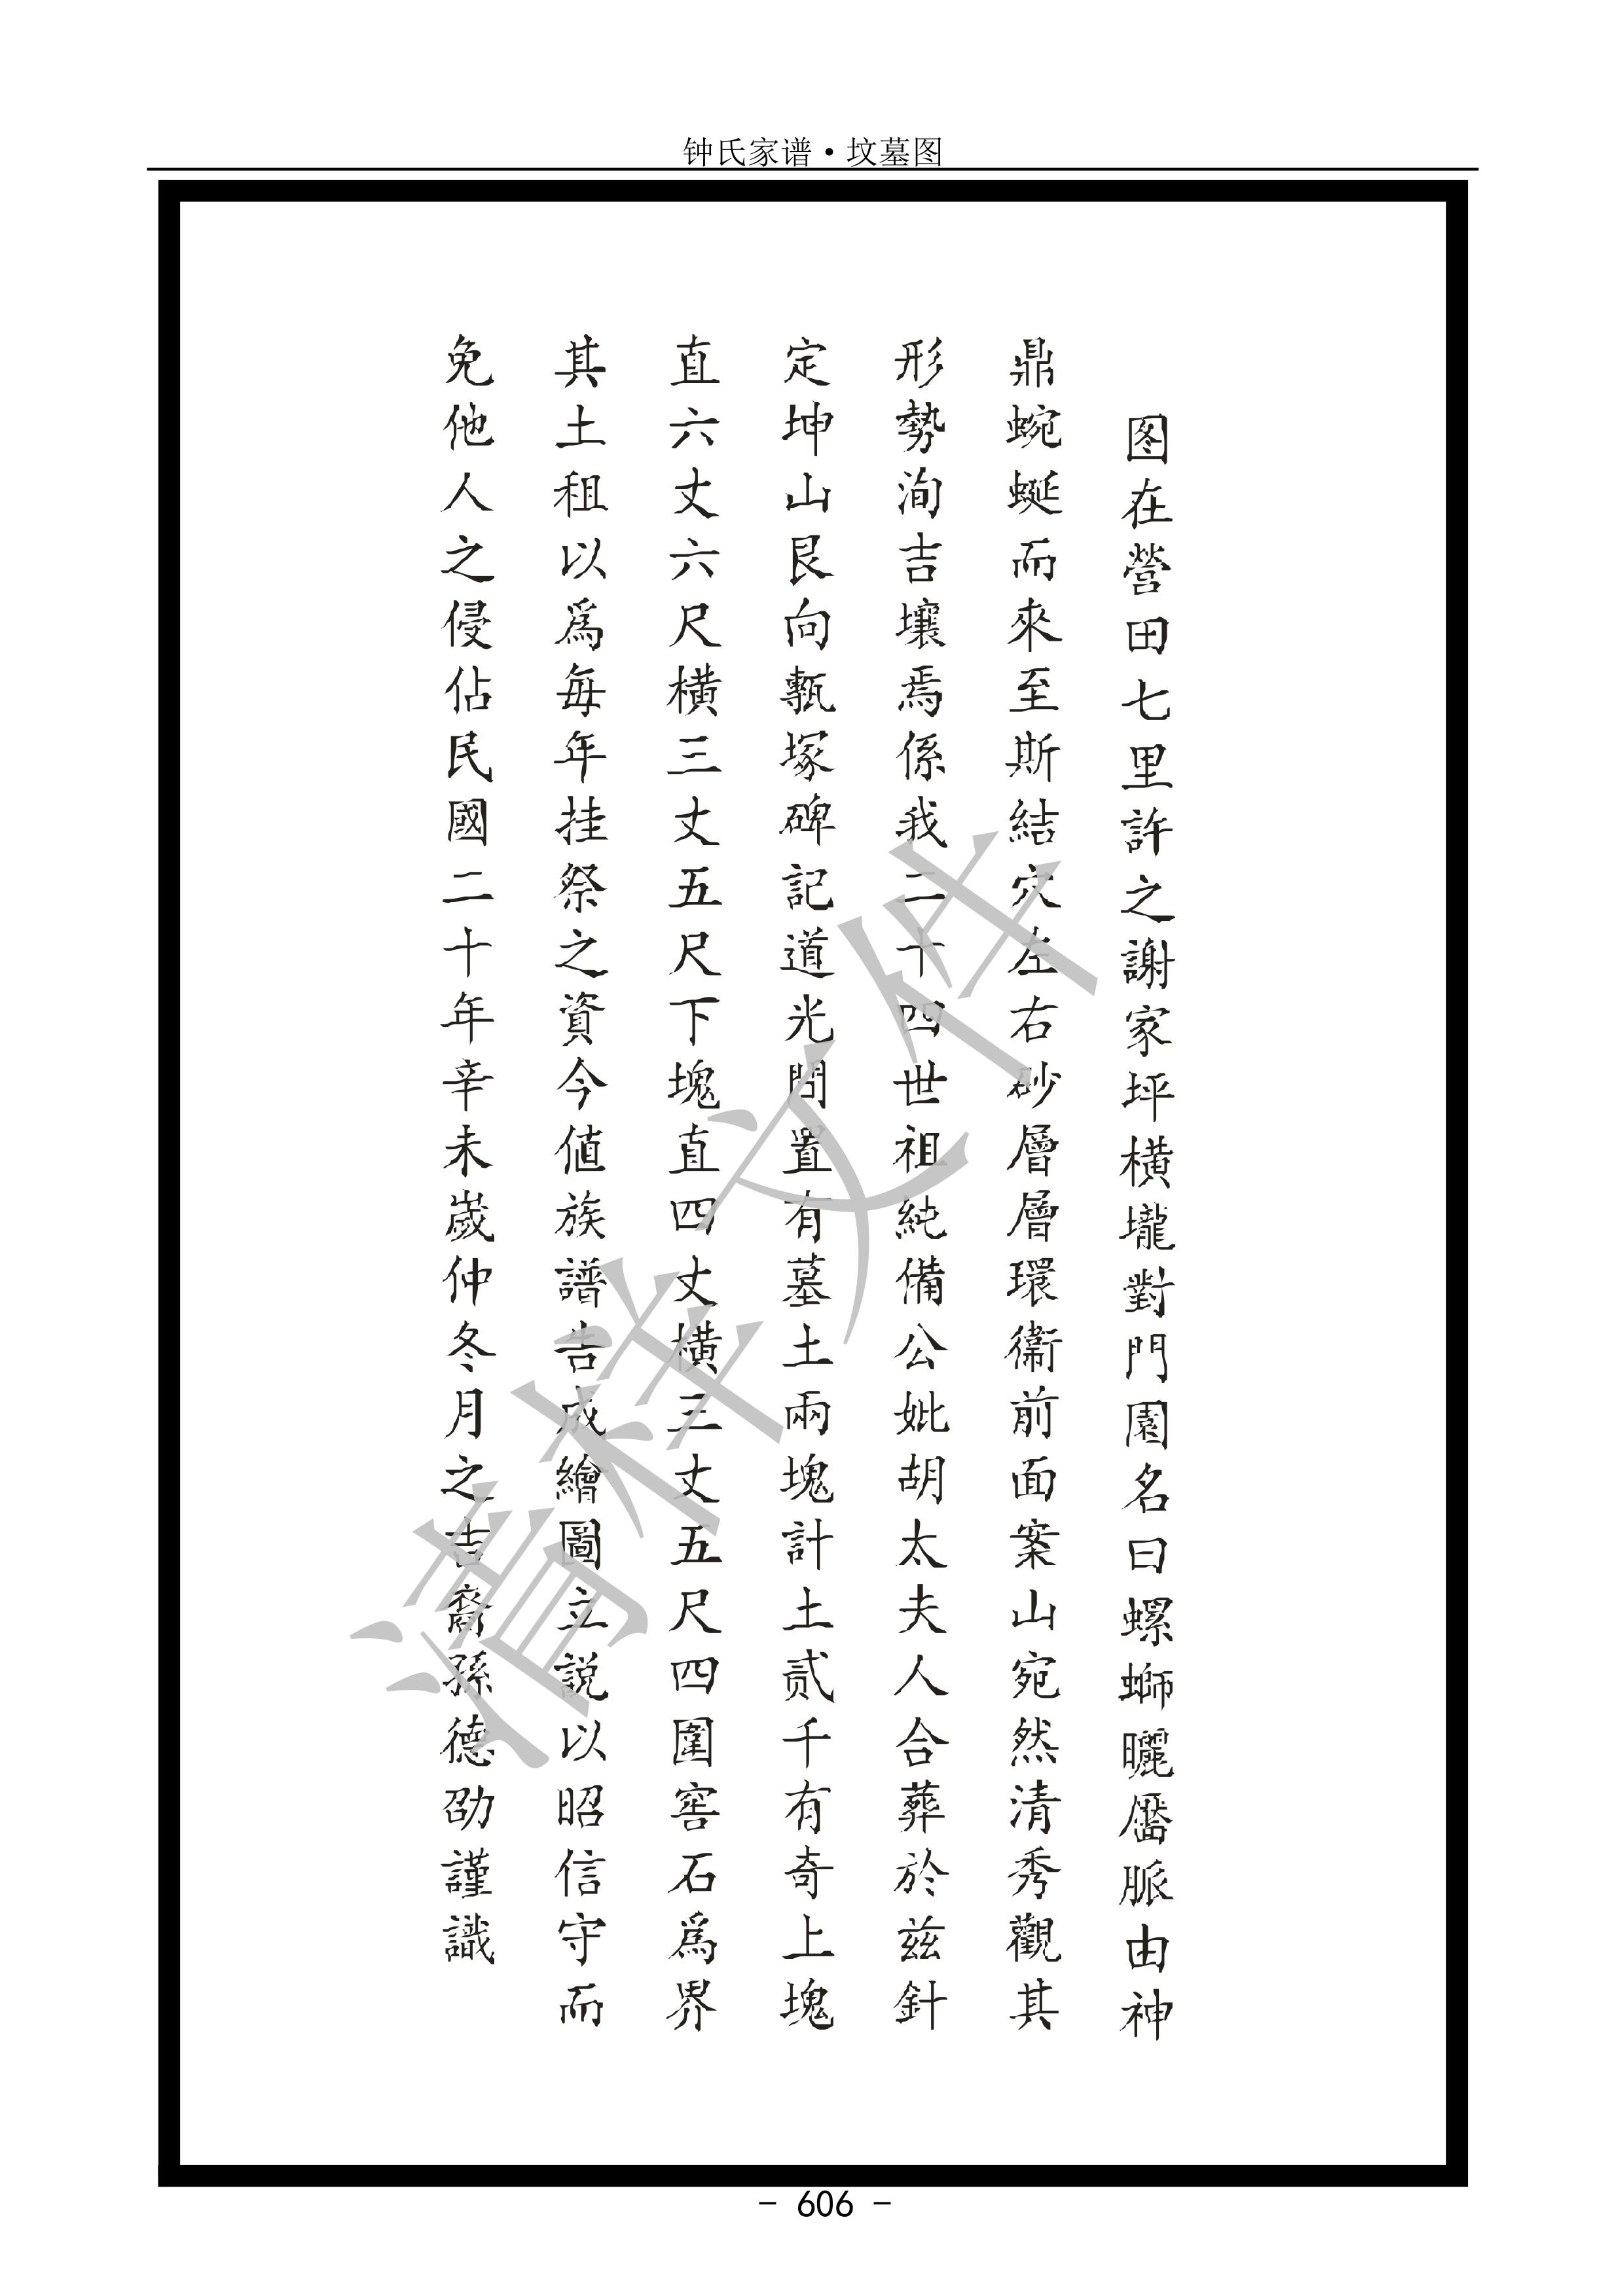 钟氏家谱·坟墓图
图在營田七里許之謝家坪橫壠對門園名曰螺螄曬靨脈由神
鼎蜿蜒而來至斯結穴左右砂層層環衞前面案山宛然清秀觀其
形勢洵吉壤焉係我二十四世祖純備公妣胡太夫人合葬於兹針
定坤山艮向甎塚碑記道光間置有墓土兩塊計土贰千有奇上塊
直六丈六尺横三丈五尺下塊直四丈横三丈五尺四圍窖石爲界
其土租以爲每年挂祭之資今値族譜告成繪圖立説以昭信守而
免他人之侵佔民國二十年辛未嵗仲冬月之吉裔孫德劭謹識
清样文件
- 606 -